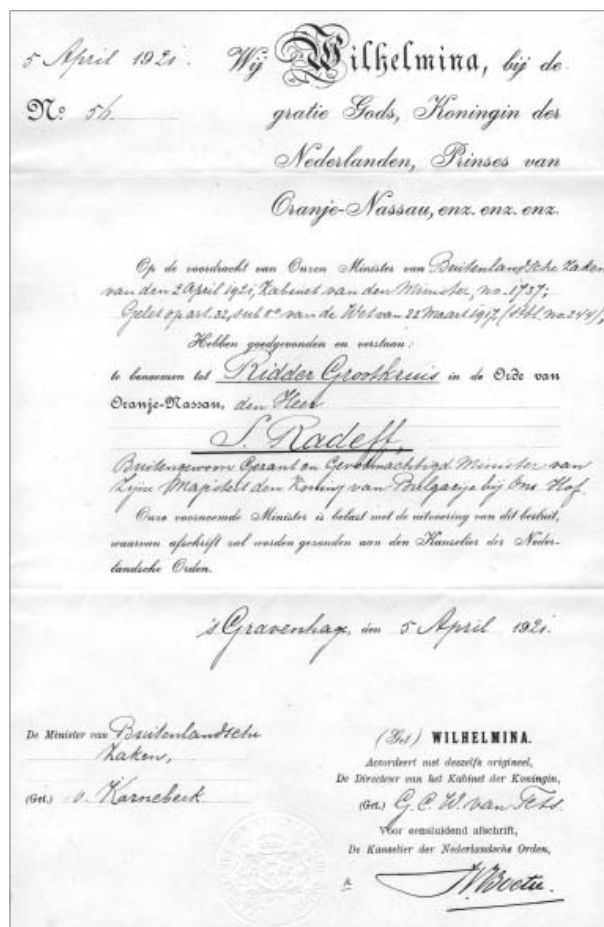 5 April 1921.
No. 56.
Wij Wilhelmina, bij de
gratie Gods, Koningin der
Nederlanden, Prinses van
Oranje-Nassau, enz. enz. enz.
Op de voordracht van Onzen Minister van Buitenlandsche Zaken
van den 2 April 1921, Kabinet van den Minister, no. 1737;
Gelet op art. 32, sub 8o van de Wet van 22 Maart 1917, (Stbl. no. 244);
Hebben goedgevonden en verstaan:
te benoemen tot Ridder Grootkruis in de Orde van
Oranje-Nassau, den Heer
S. Radeff,
Buitengewoon Gezant en Gevolmachtigd Minister van
Zijne Majesteit den Koning van Bulgarije bij Ons Hof.
Onze voornoemde Minister is belast met de uitvoering van dit besluit,
waarvan afschrift zal worden gezonden aan den Kanselier der Neder-
landsche Orden.
's Gravenhage, den 5 April 1921.
De Minister van Buitenlandsche
Zaken,
(Get.) v. Karnebeek
(Get.) WILHELMINA.
Accordeert met deszelfs origineel,
De Directeur van het Kabinet der Koningin,
(Get.) G. C. W. van Tets.
Voor eensluidend afschrift,
De Kanselier der Nederlandsche Orden,